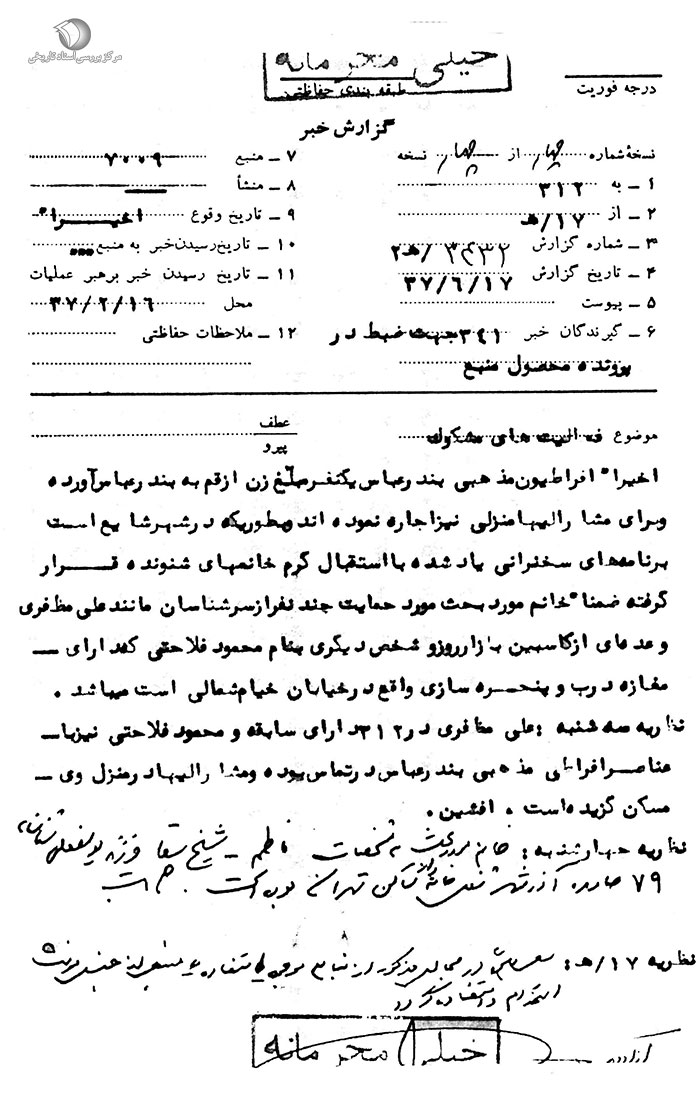 مرکز بررسی اسناد تاریخی
خیلی محرمانه
طبقه بندی حفاظتی
درجه فوریت
گزارش خبر
نسخهٔ شماره چهار از چهار نسخه
۱ ـ به ۳۱۲
۲ ـ از ۱۷/هـ
۳ ـ شماره گزارش ۳۴۳۲/هـ۲
۴ ـ تاریخ گزارش ۳۷/۶/۱۷
۵ ـ پیوست
۶ ـ گیرندگان خبر ۳۴۱جهت ضبط در
پرونده محصول منبع
۷ ـ منبع ۷۰۰۹
۸ ـ منشأ
۹ ـ تاریخ وقوع اخیرا"
۱۰ ـ تاریخ رسیدن خبر به منبع
۱۱ ـ تاریخ رسیدن خبر برهبر عملیات
محل ۳۷/۶/۱۶
۱۲ ـ ملاحظات حفاظتی
موضوع فعالیت های مشکوک
عطف
پیرو
اخیرا" افراطیون مذهبی بندرعباس یکنفر مبلغ زن از قم به بندرعباس آورده
وبرای مشارالیها منزلی نیز اجاره نموده اند وبطوریکه در شهر شایع است
برنامه های سخنرانی یاد شده با استقبال گرم خانمهای شنونده قرار
گرفته ضمنا" خانم مورد بحث مورد حمایت چند نفر از سرشناسان مانند علی مظفری
وعده ای از کاسبین بازار روز و شخص دیگری بنام محمود فلاحتی که دارای ـ
مغازه درب و پنجره سازی واقع در خیابان خیام شمالی است میباشد .
نظریه سه شنبه : علی مظفری در ۳۱۲ دارای سابقه و محمود فلاحتی نیز با ـ
عناصر افراطی مذهبی بندرعباس در تماس بوده ومشارالیها در منزل وی ـ
مسکن گزیده است . افشین .
نظریه چهارشنبه : خانم مورد بحث مشخصات فاطمه ـ شیخ سقا فرزند ابوالفضل
۷۹ صادره آذرشهر شغل خانه دار ساکن تهران بوده است .
نظریه ۱۷/هـ :
خیلی محرمانه